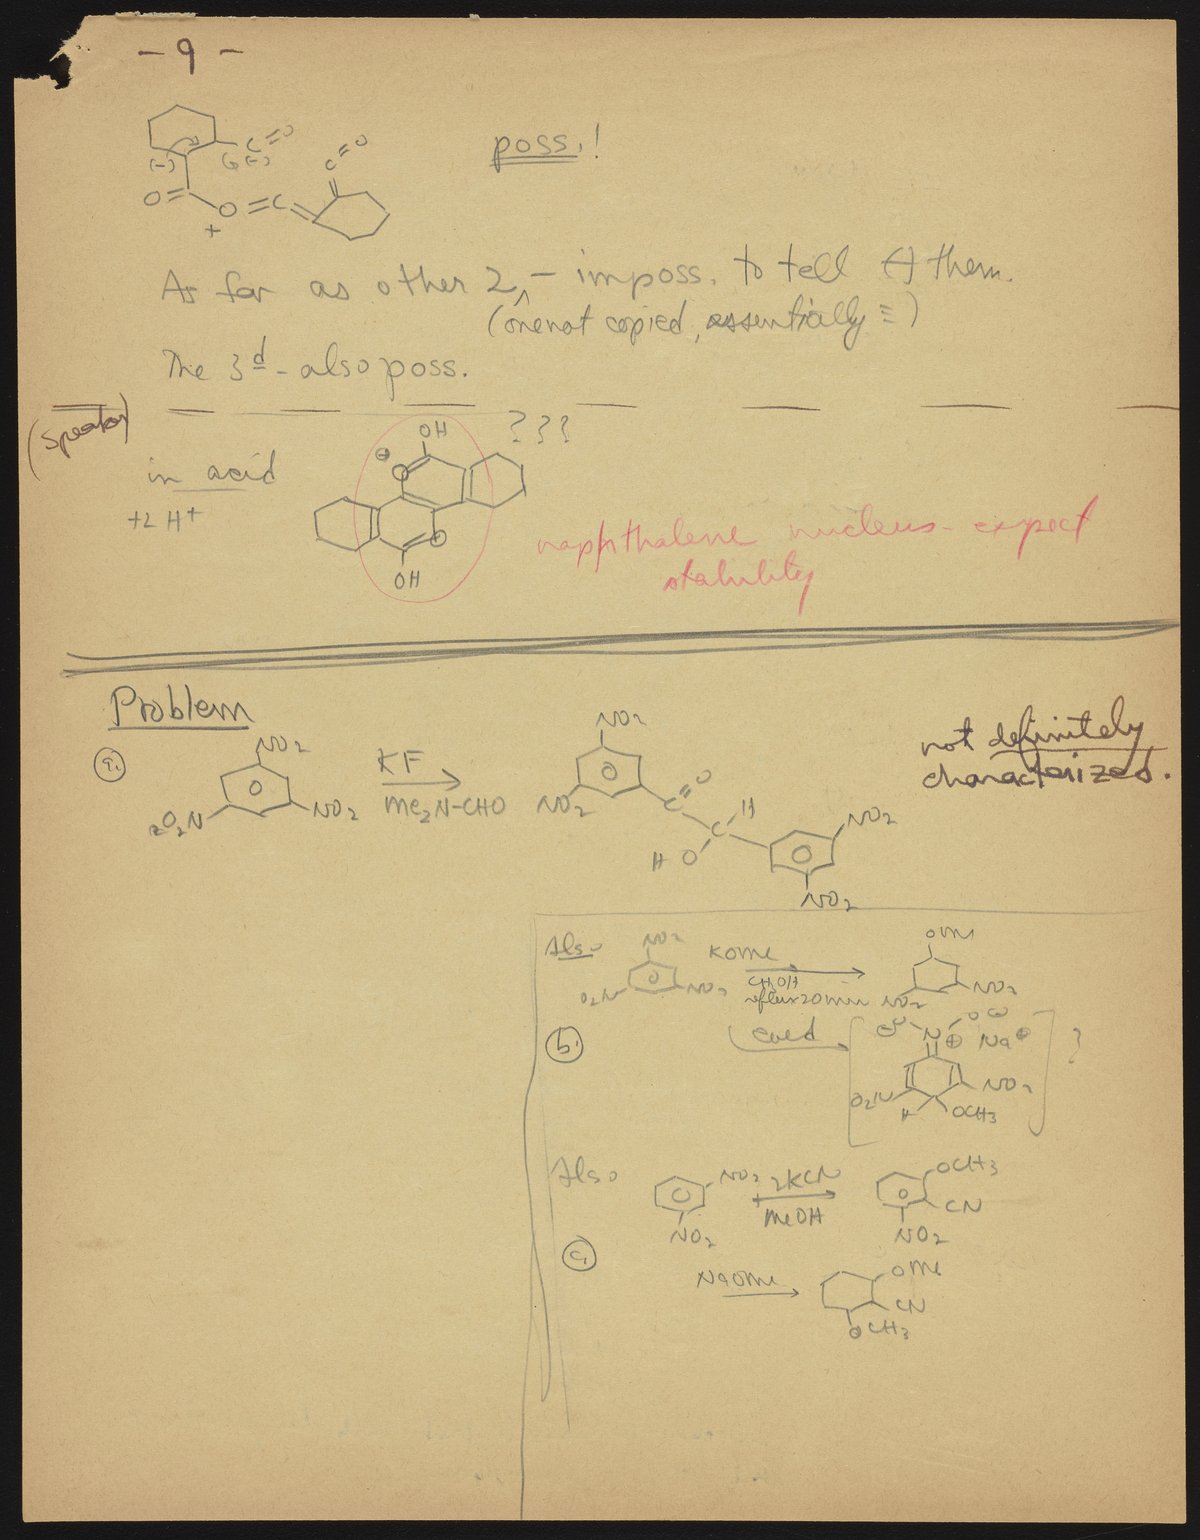 - 9 -
C=O
C=O
poss.!
(-)
(-)
O=
O=C=
+
As far as other 2, - imposs. to tell (+) them.
(one not copied, essentially ≡)
The 3d - also poss.
(speaker)
in acid
+2 H+
OH
⊕
O
O
OH
???
naphthalene nucleus - expect
stability
Problem
a.
NO2
O2N
NO2
KF
Me2N-CHO
NO2
NO2
C=O
C
H
HO
NO2
NO2
not definitely
characterized.
Also
NO2
O2N
NO2
KOMe
CH3OH
reflux 20 min
OMe
NO2
NO2
b.
cold
⊖O
N
⊕
O⊖
Na⊕
O2N
NO2
H
OCH3
?
Also
NO2
NO2
2KCN
MeOH
OCH3
CN
NO2
c.
NaOMe
OMe
CN
OCH3